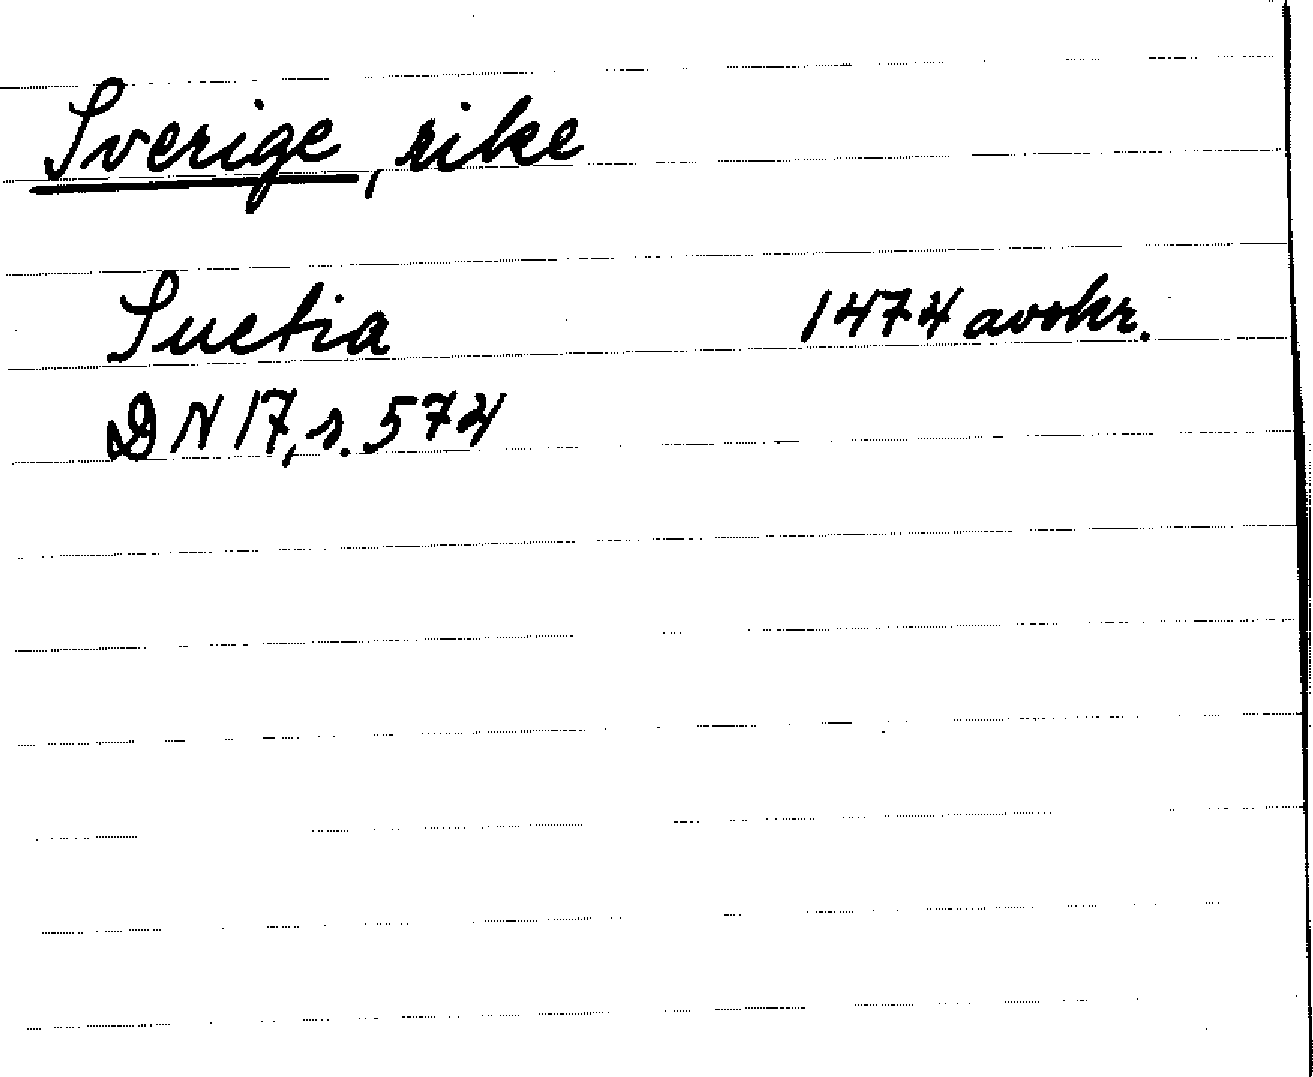 Sverige, rike
Suetia 1474 avskr.
DN 17, s. 574